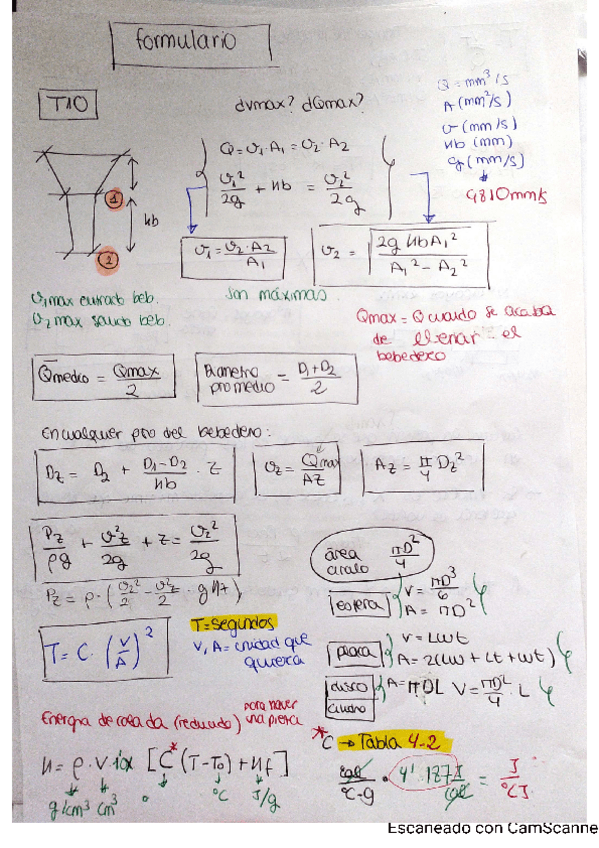 formulario
T10
dvmax? dQmax?
Q = mm³/s
A (mm²/s)
v (mm/s)
hb (mm)
g (mm/s)
9810mm/s
Q = v₁·A₁ = v₂·A₂
v₁²/2g + hb = v₂²/2g
v₁ = v₂·A₂/A₁
v₂ = √(2g hb A₁²/(A₁² - A₂²))
1
hb
2
v₁max entrada beb.
v₂ max salida beb.
son máximas.
Qmax = Q cuando se acaba
de llenar el
bebedero
Qmedio = Qmax/2
Diametro promedio = D₁+D₂/2
En cualquier pto del bebedero:
Dz = D₂ + D₁-D₂/hb · z
vz = Qmax/Az
Az = π/4 Dz²
Pz/ρg + v²z/2g + z = v₂²/2g
Pz = ρ·(v₂²/2 - v²z/2 · g hz)
área círculo πD²/4
esfera V = πD³/6
A = πD²
T = C·(V/A)²
T = Segundos
V, A = unidad que
quiera
placa V = Lwt
A = 2(Lw + Lt + wt)
disco A = πDL V = πD²/4 · L
Energia de colada (reducido) para hacer una pieza
*C → Tabla 4-2
H = ρ·V· [C* (T-To) + Hf]
g/cm³ cm³ °C J/g
cal/°C·g · 4'187J/cal = J/°C
Escaneado con CamScanne